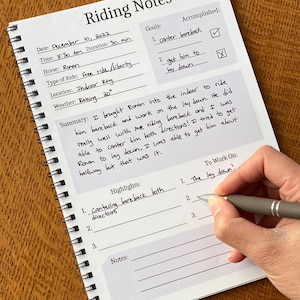 Riding Notes
Date: December 10, 2022
Time: 8:30 Am Duration: 30 min
Horse: Ronan
Type of Ride: Free ride/Liberty
Location: Indoor Ring
Weather: Raining 20°
Goals: Accomplished:
1. canter bareback
2. get him to
lay down
Summary: I brought Ronan into the indoor to ride
him bareback and work on the lay down. He did
really well with me riding bareback and I was
able to canter him both directions! I tried to get
Ronan to lay down. I was able to get him about
halfway but that was it.
Highlights:
1. Cantering bareback both
directions
2.
3.
To Work On:
1. The lay down!
2.
3.
Notes: